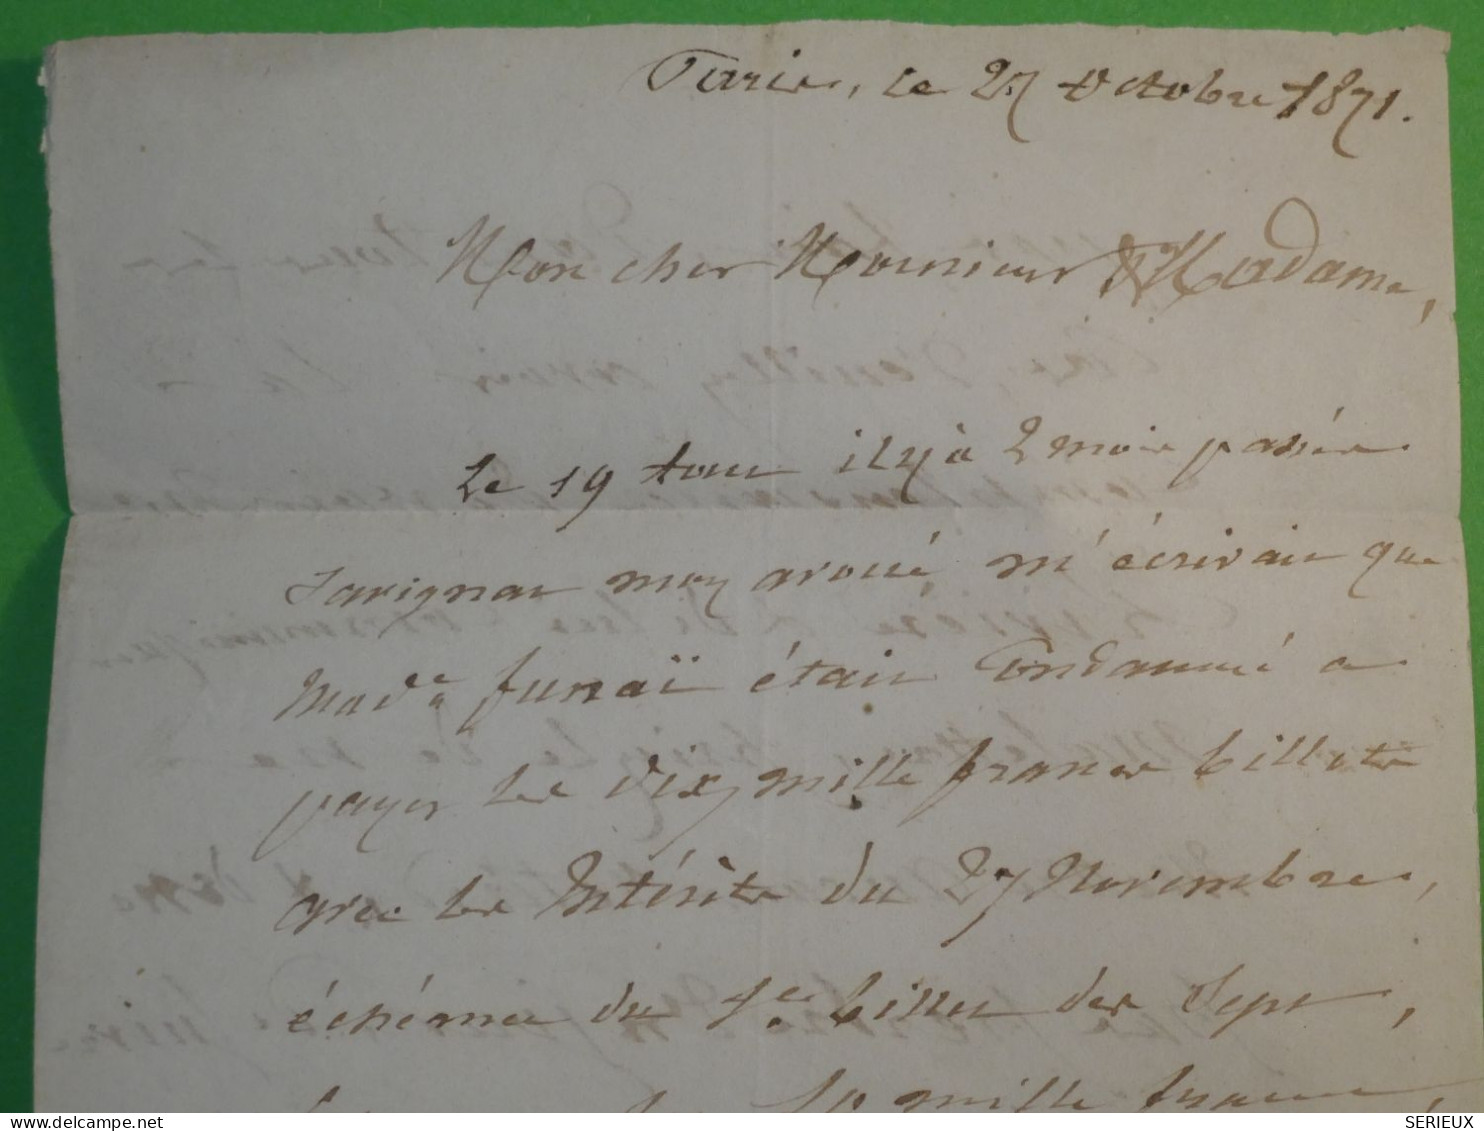 Paris, le 27 Octobre 1871.
Mon cher Monsieur & Madame,
Le 19 Aout il y à 2 mois passés
Savignat mon avoué, m'écrivait que
Made funaï était Condamné a
payer les dix mille francs billets
avec les Intérêts du 27 Novembre,
échéance du 1er billet des Sept,
mille francs,
SERIEUX